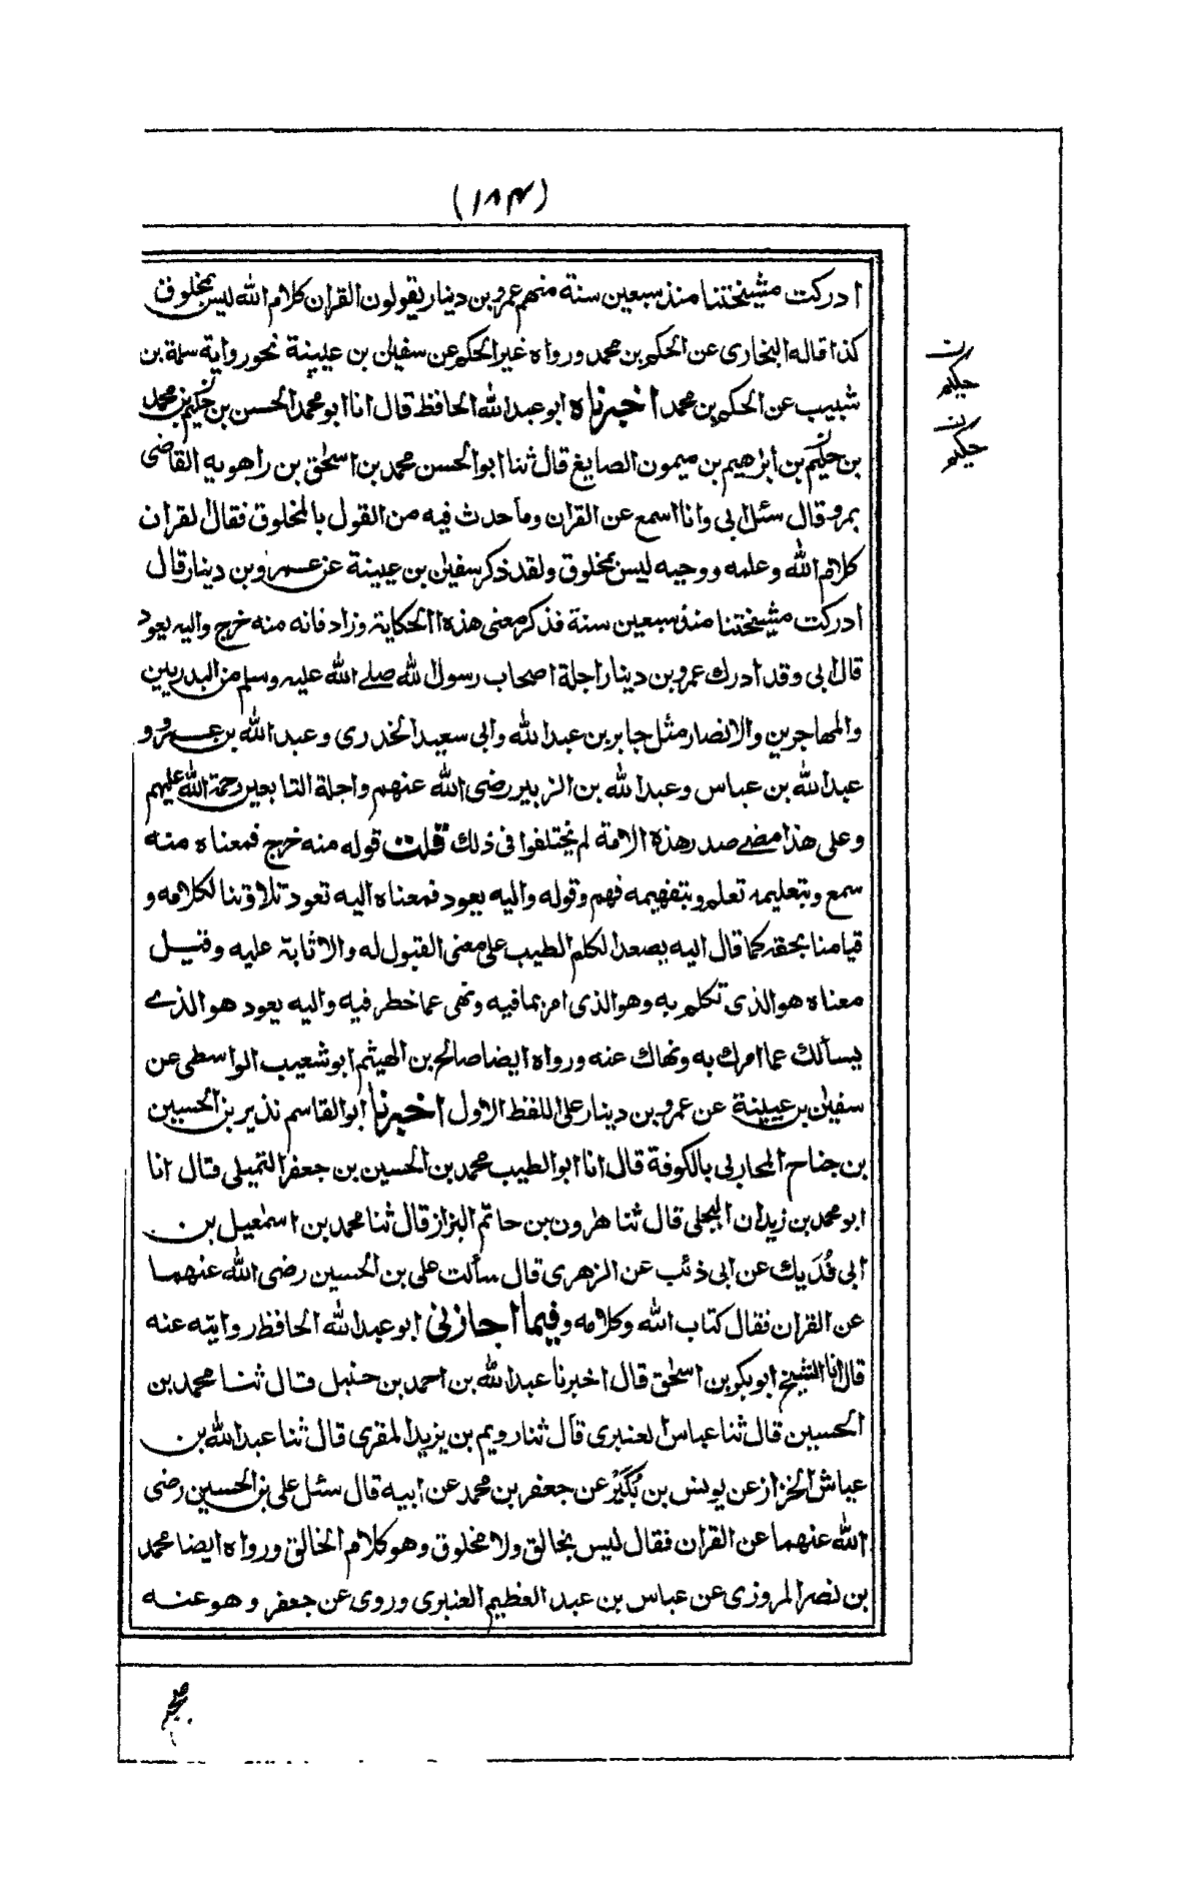 (۱۸۴)
ادركت مشيختنا منذ سبعين سنة منهم عمرو بن دينار يقولون القران كلام الله ليس بمخلوق
كذا قاله البخارى عن الحكم بن محمد ورواه غير الحكم عن سفين بن عيينة نحو رواية سلمة بن
شبيب عن الحكم بن محمد اخبرناه ابو عبد الله الحافظ قال انا ابو محمد الحسن بن حكيم بن محمد
بن حكيم بن ابرهيم بن ميمون الصايغ قال ثنا ابو الحسن محمد بن اسحق بن راهويه القاضى
بمرو قال سئل ابى وانا اسمع عن القران وما حدث فيه من القول بالمخلوق فقال القران
كلام الله وعلمه ووحيه ليس بمخلوق ولقد ذكر سفين بن عيينة عن عمرو بن دينار قال
ادركت مشيختنا منذ سبعين سنة فذكر معنى هذه الحكاية وزاد فانه منه خرج واليه يعود
قال ابى وقد ادرك عمرو بن دينار اجلة اصحاب رسول الله صلے الله عليه وسلم من البدريين
والمهاجرين والانصار مثل جابر بن عبد الله وابى سعيد الخدرى وعبد الله بن عمرو و
عبد الله بن عباس وعبد الله بن الزبير رضى الله عنهم واجلة التابعين رحمة الله عليهم
وعلى هذا مضے صدر هذه الامة لم يختلفوا فى ذلك قلت قوله منه خرج فمعناه منه
سمع وبتعليمه تعلم وبتفهيمه فهم وقوله واليه يعود فمعناه اليه تعود تلاوتنا لكلامه و
قيامنا بحقه كما قال اليه يصعد الكلم الطيب على معنى القبول له والاثابة عليه وقيل
معناه هو الذى تكلم به وهو الذى امر بما فيه ونهى عما خطر فيه واليه يعود هو الذے
يسألك عما امرك به ونهاك عنه ورواه ايضا صالح بن الهيثم ابو شعيب الواسطى عن
سفين بن عيينة عن عمرو بن دينار على اللفظ الاول اخبرنا ابو القاسم نذير بن الحسين
بن جناح المحاربى بالكوفة قال انا ابو الطيب محمد بن الحسين بن جعفر التميلى قال انا
ابو محمد بن زيدان البجلى قال ثنا هرون بن حاتم البزاز قال ثنا محمد بن اسمعيل بن
ابى فُدَيك عن ابى ذئب عن الزهرى قال سألت على بن الحسين رضى الله عنهما
عن القران فقال كتاب الله وكلامه وفيما اجازنى ابو عبد الله الحافظ روايته عنه
قال انا الشيخ ابو بكر بن اسحق قال اخبرنا عبد الله بن احمد بن حنبل قال ثنا محمد بن
الحسين قال ثنا عباس العنبرى قال ثنا رويم بن يزيد المقرى قال ثنا عبد الله بن
عياش الخزاز عن يونس بن بُكَيْر عن جعفر بن محمد عن ابيه قال سئل على بن الحسين رضى
الله عنهما عن القران فقال ليس بخالق ولا مخلوق وهو كلام الخالق ورواه ايضا محمد
بن نصر المروزى عن عباس بن عبد العظيم العنبرى وروى عن جعفر وهو عنه
ن
حكيم
ن
حكيم
صحيح